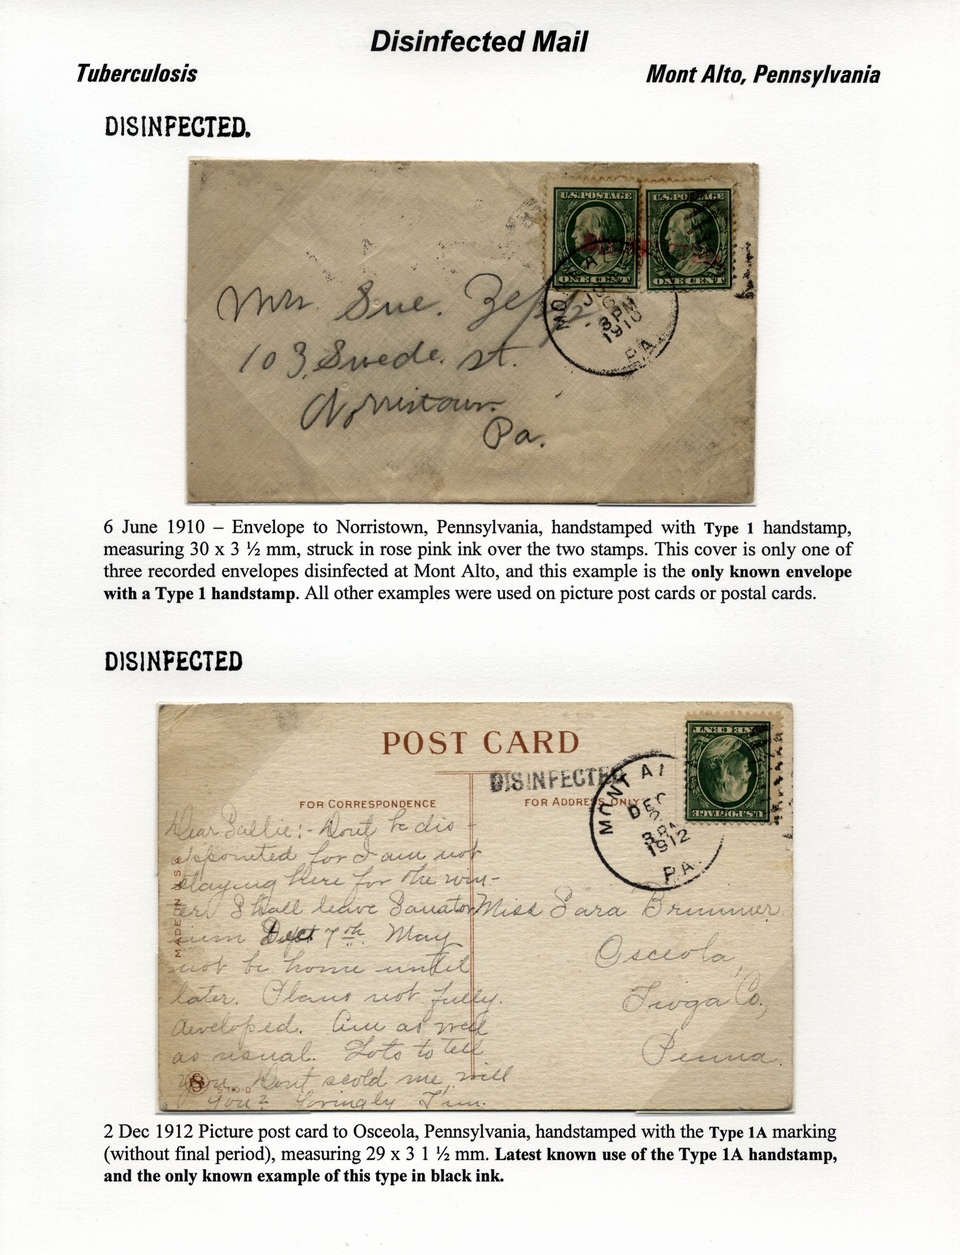 Disinfected Mail
Tuberculosis Mont Alto, Pennsylvania
DISINFECTED.
U.S. POSTAGE U.S. POSTAGE
ONE CENT ONE CENT
MO
3 PM
1910
PA.
Mrs. Sue.
103, Swede. st.
Norristown.
Pa.
6 June 1910 – Envelope to Norristown, Pennsylvania, handstamped with Type 1 handstamp,
measuring 30 x 3 ½ mm, struck in rose pink ink over the two stamps. This cover is only one of
three recorded envelopes disinfected at Mont Alto, and this example is the only known envelope
with a Type 1 handstamp. All other examples were used on picture post cards or postal cards.
DISINFECTED
POST CARD
DISINFECTED
FOR CORRESPONDENCE FOR ADDRESS ONLY
MONT AL
DEC
2
1912
PA.
MADE IN U.S.A.
Dear Sallie:- Dont be dis-
appointed for I am not
staying here for the win-
ter. Shall leave Sanator
ium 7th. May
not be home until
later. Plans not fully
developed. Am as well
as usual. Lots to tell
you. Dont scold me, will
you? Lovingly
Miss Sara Brummer
Osceola,
Tioga Co.,
Penna.
2 Dec 1912 Picture post card to Osceola, Pennsylvania, handstamped with the Type 1A marking
(without final period), measuring 29 x 3 1 ½ mm. Latest known use of the Type 1A handstamp,
and the only known example of this type in black ink.